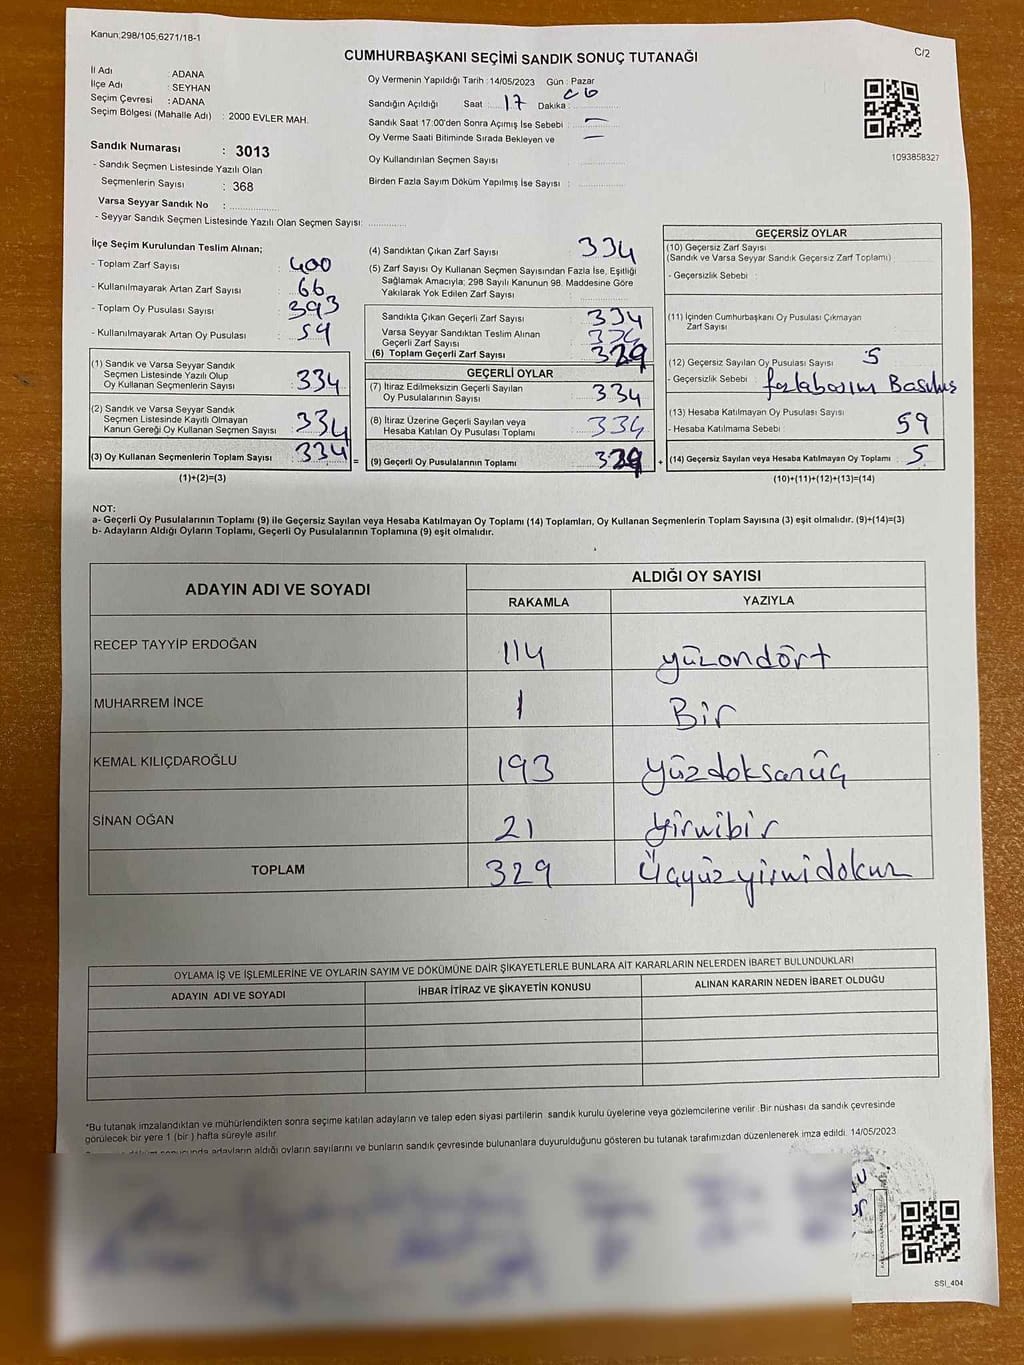 Kanun;298/105,6271/18-1
C/2
CUMHURBAŞKANI SEÇİMİ SANDIK SONUÇ TUTANAĞI
İl Adı : ADANA
İlçe Adı : SEYHAN
Seçim Çevresi : ADANA
Seçim Bölgesi (Mahalle Adı) : 2000 EVLER MAH.
Oy Vermenin Yapıldığı Tarih : 14/05/2023 Gün : Pazar
Sandığın Açıldığı Saat : 17 Dakika :
Sandık Saat 17:00'den Sonra Açımış İse Sebebi : —
Oy Verme Saati Bitiminde Sırada Bekleyen ve —
Oy Kullandırılan Seçmen Sayısı
Birden Fazla Sayım Döküm Yapılmış İse Sayısı :
1093858327
Sandık Numarası : 3013
- Sandık Seçmen Listesinde Yazılı Olan
Seçmenlerin Sayısı : 368
Varsa Seyyar Sandık No :
- Seyyar Sandık Seçmen Listesinde Yazılı Olan Seçmen Sayısı:
İlçe Seçim Kurulundan Teslim Alınan;
- Toplam Zarf Sayısı : 400
- Kullanılmayarak Artan Zarf Sayısı : 66
- Toplam Oy Pusulası Sayısı : 393
- Kullanılmayarak Artan Oy Pusulası : 59
(1) Sandık ve Varsa Seyyar Sandık
Seçmen Listesinde Yazılı Olup
Oy Kullanan Seçmenlerin Sayısı : 334
(2) Sandık ve Varsa Seyyar Sandık
Seçmen Listesinde Kayıtlı Olmayan
Kanun Gereği Oy Kullanan Seçmen Sayısı : 334
(3) Oy Kullanan Seçmenlerin Toplam Sayısı : 334 =
(1)+(2)=(3)
(4) Sandıktan Çıkan Zarf Sayısı : 334
(5) Zarf Sayısı Oy Kullanan Seçmen Sayısından Fazla İse, Eşitliği
Sağlamak Amacıyla; 298 Sayılı Kanunun 98. Maddesine Göre
Yakılarak Yok Edilen Zarf Sayısı :
Sandıkta Çıkan Geçerli Zarf Sayısı : 334
Varsa Seyyar Sandıktan Teslim Alınan
Geçerli Zarf Sayısı : 334
(6) Toplam Geçerli Zarf Sayısı : 329
GEÇERLİ OYLAR
(7) İtiraz Edilmeksizin Geçerli Sayılan
Oy Pusulalarının Sayısı : 334
(8) İtiraz Üzerine Geçerli Sayılan veya
Hesaba Katılan Oy Pusulası Toplamı : 334
(9) Geçerli Oy Pusulalarının Toplamı : 329 +
GEÇERSİZ OYLAR
(10) Geçersiz Zarf Sayısı
(Sandık ve Varsa Seyyar Sandık Geçersiz Zarf Toplamı) :
- Geçersizlik Sebebi :
(11) İçinden Cumhurbaşkanı Oy Pusulası Çıkmayan
Zarf Sayısı :
(12) Geçersiz Sayılan Oy Pusulası Sayısı : 5
- Geçersizlik Sebebi : fazlabasım Basılmış
(13) Hesaba Katılmayan Oy Pusulası Sayısı :
- Hesaba Katılmama Sebebi : 59
(14) Geçersiz Sayılan veya Hesaba Katılmayan Oy Toplamı : 5
(10)+(11)+(12)+(13)=(14)
NOT:
a- Geçerli Oy Pusulalarının Toplamı (9) ile Geçersiz Sayılan veya Hesaba Katılmayan Oy Toplamı (14) Toplamları, Oy Kullanan Seçmenlerin Toplam Sayısına (3) eşit olmalıdır. (9)+(14)=(3)
b- Adayların Aldığı Oyların Toplamı, Geçerli Oy Pusulalarının Toplamına (9) eşit olmalıdır.
ADAYIN ADI VE SOYADI
ALDIĞI OY SAYISI
RAKAMLA YAZIYLA
RECEP TAYYİP ERDOĞAN 114 yüzondört
MUHARREM İNCE 1 Bir
KEMAL KILIÇDAROĞLU 193 yüzdoksanüç
SİNAN OĞAN 21 yirmibir
TOPLAM 329 Üçyüzyirmidokuz
OYLAMA İŞ VE İŞLEMLERİNE VE OYLARIN SAYIM VE DÖKÜMÜNE DAİR ŞİKAYETLERLE BUNLARA AİT KARARLARIN NELERDEN İBARET BULUNDUKLARI
ADAYIN ADI VE SOYADI
İHBAR İTİRAZ VE ŞİKAYETİN KONUSU
ALINAN KARARIN NEDEN İBARET OLDUĞU
*Bu tutanak imzalandıktan ve mühürlendikten sonra seçime katılan adayların ve talep eden siyasi partilerin sandık kurulu üyelerine veya gözlemcilerine verilir. Bir nüshası da sandık çevresinde
görülecek bir yere 1 (bir ) hafta süreyle asılır.
adayların aldığı oyların sayılarını ve bunların sandık çevresinde bulunanlara duyurulduğunu gösteren bu tutanak tarafımızdan düzenlenerek imza edildi. 14/05/2023
SSI_404